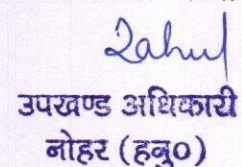 Rahul
उपखण्ड अधिकारी
नोहर (हनु०)